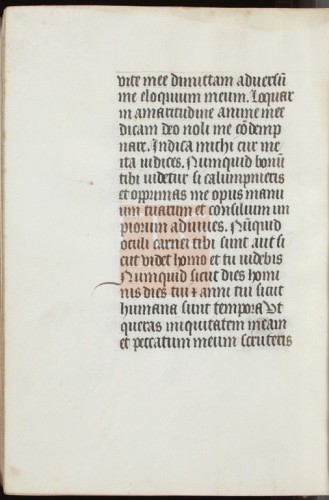 vite mee dimittam adversū
me eloquium meum. Loquar
in amaritudine anime mee
dicam deo noli me cōdemp
nare. Indica michi cur me
ita iudices. Numquid bonū
tibi videtur si calumpnieris
et opprimas me opus manu
um tuarum et consilium im
piorum adiuves. Nūquid
oculi carnei tibi sunt aut si
cut videt homo et tu videbis
Numquid sicut dies homi
nis dies tui ⁊ anni tui sicut
humana sunt tempora Ut
queras iniquitatem meam
et peccatum meum scruteris